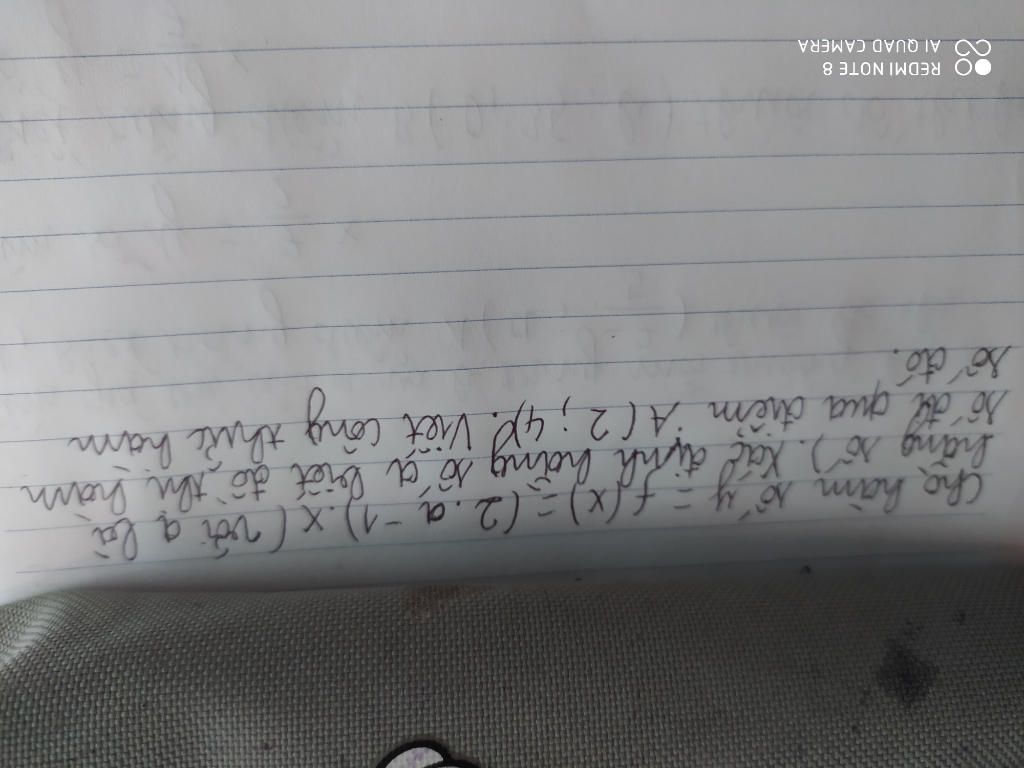 Cho hàm số y = f(x) = (2.a - 1).x (với a là
hằng số). Xác định hằng số a biết đồ thị hàm
số đi qua điểm A(2; 4). Viết công thức hàm
số đó.
REDMI NOTE 8
AI QUAD CAMERA